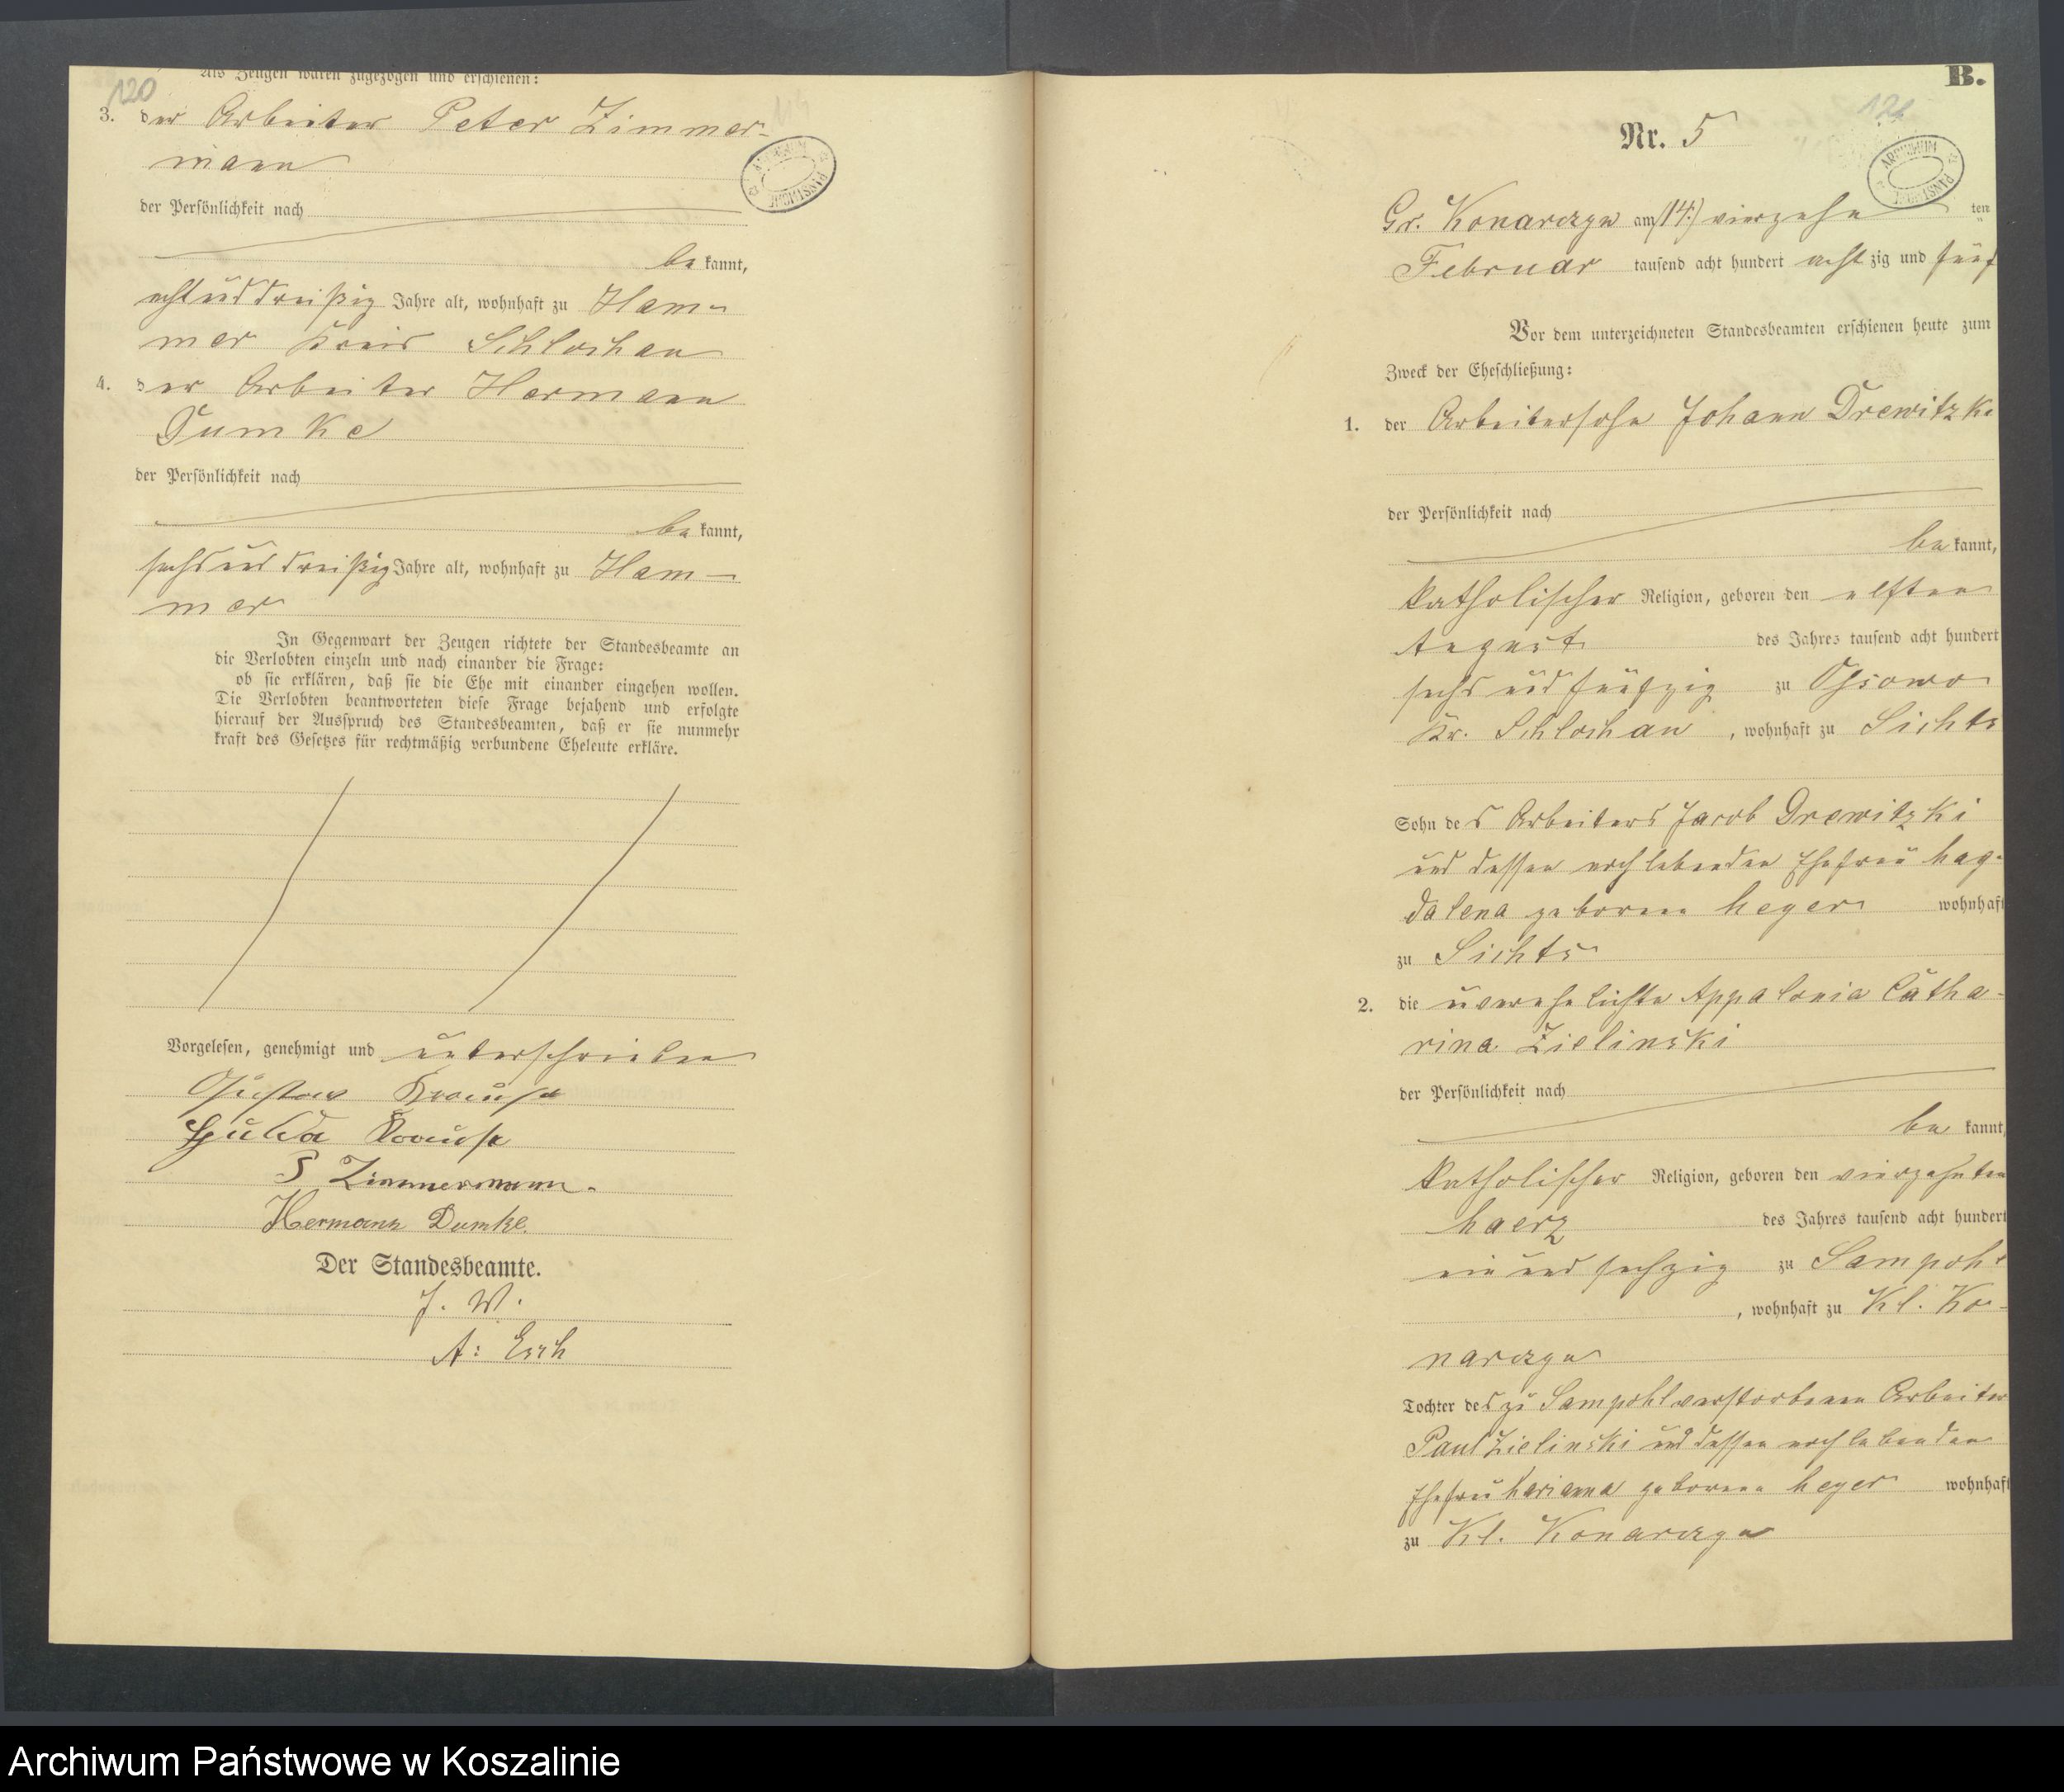 120
Als Zeugen waren zugezogen und erschienen:
3. der Arbeiter Peter Zimmer-
mann
der Persönlichkeit nach
be kannt,
acht und dreißig Jahre alt, wohnhaft zu Ham-
mer Kreis Schlochau
4. der Arbeiter Hermann
Dumke
der Persönlichkeit nach
be kannt,
sechs und dreißig Jahre alt, wohnhaft zu Ham-
mer
In Gegenwart der Zeugen richtete der Standesbeamte an
die Verlobten einzeln und nach einander die Frage:
ob sie erklären, daß sie die Ehe mit einander eingehen wollen.
Die Verlobten beantworteten diese Frage bejahend und erfolgte
hierauf der Ausspruch des Standesbeamten, daß er sie nunmehr
kraft des Gesetzes für rechtmäßig verbundene Eheleute erkläre.
Vorgelesen, genehmigt und unterschrieben
Gustav Krause
Hulda Krause
P Zimmermann.
Hermann Dumke.
Der Standesbeamte.
J. W.
A: Esch
B.
121
ARCHIWUM PAŃSTWOWE
Nr. 5
Gr. Konarczyn am (14.) vierzehn ten
Februar tausend acht hundert acht zig und fünf
Vor dem unterzeichneten Standesbeamten erschienen heute zum
Zweck der Eheschließung:
1. der Arbeitersohn Johann Drewitzki
der Persönlichkeit nach
be kannt,
katholischer Religion, geboren den elften
August des Jahres tausend acht hundert
sechs und fünfzig zu Ossowo
Kr. Schlochau, wohnhaft zu Sichts
Sohn des Arbeiters Jacob Drewitzki
und dessen noch lebenden Ehefrau Mag-
dalena geborene Meger wohnhaft
zu Sichts
2. die unverehelichte Appalonia Catha-
rina Zielinski
der Persönlichkeit nach
be kannt,
katholischer Religion, geboren den vierzehnten
Maerz des Jahres tausend acht hundert
ein und sechzig zu Sampohl
, wohnhaft zu Kl. Ko-
narczyn
Tochter des zu Sampohl verstorbenen Arbeiter
Paul Zielinski und dessen noch lebenden
Ehefrau Marianna geborene Meger wohnhaft
zu Kl. Konarczyn
Archiwum Państwowe w Koszalinie